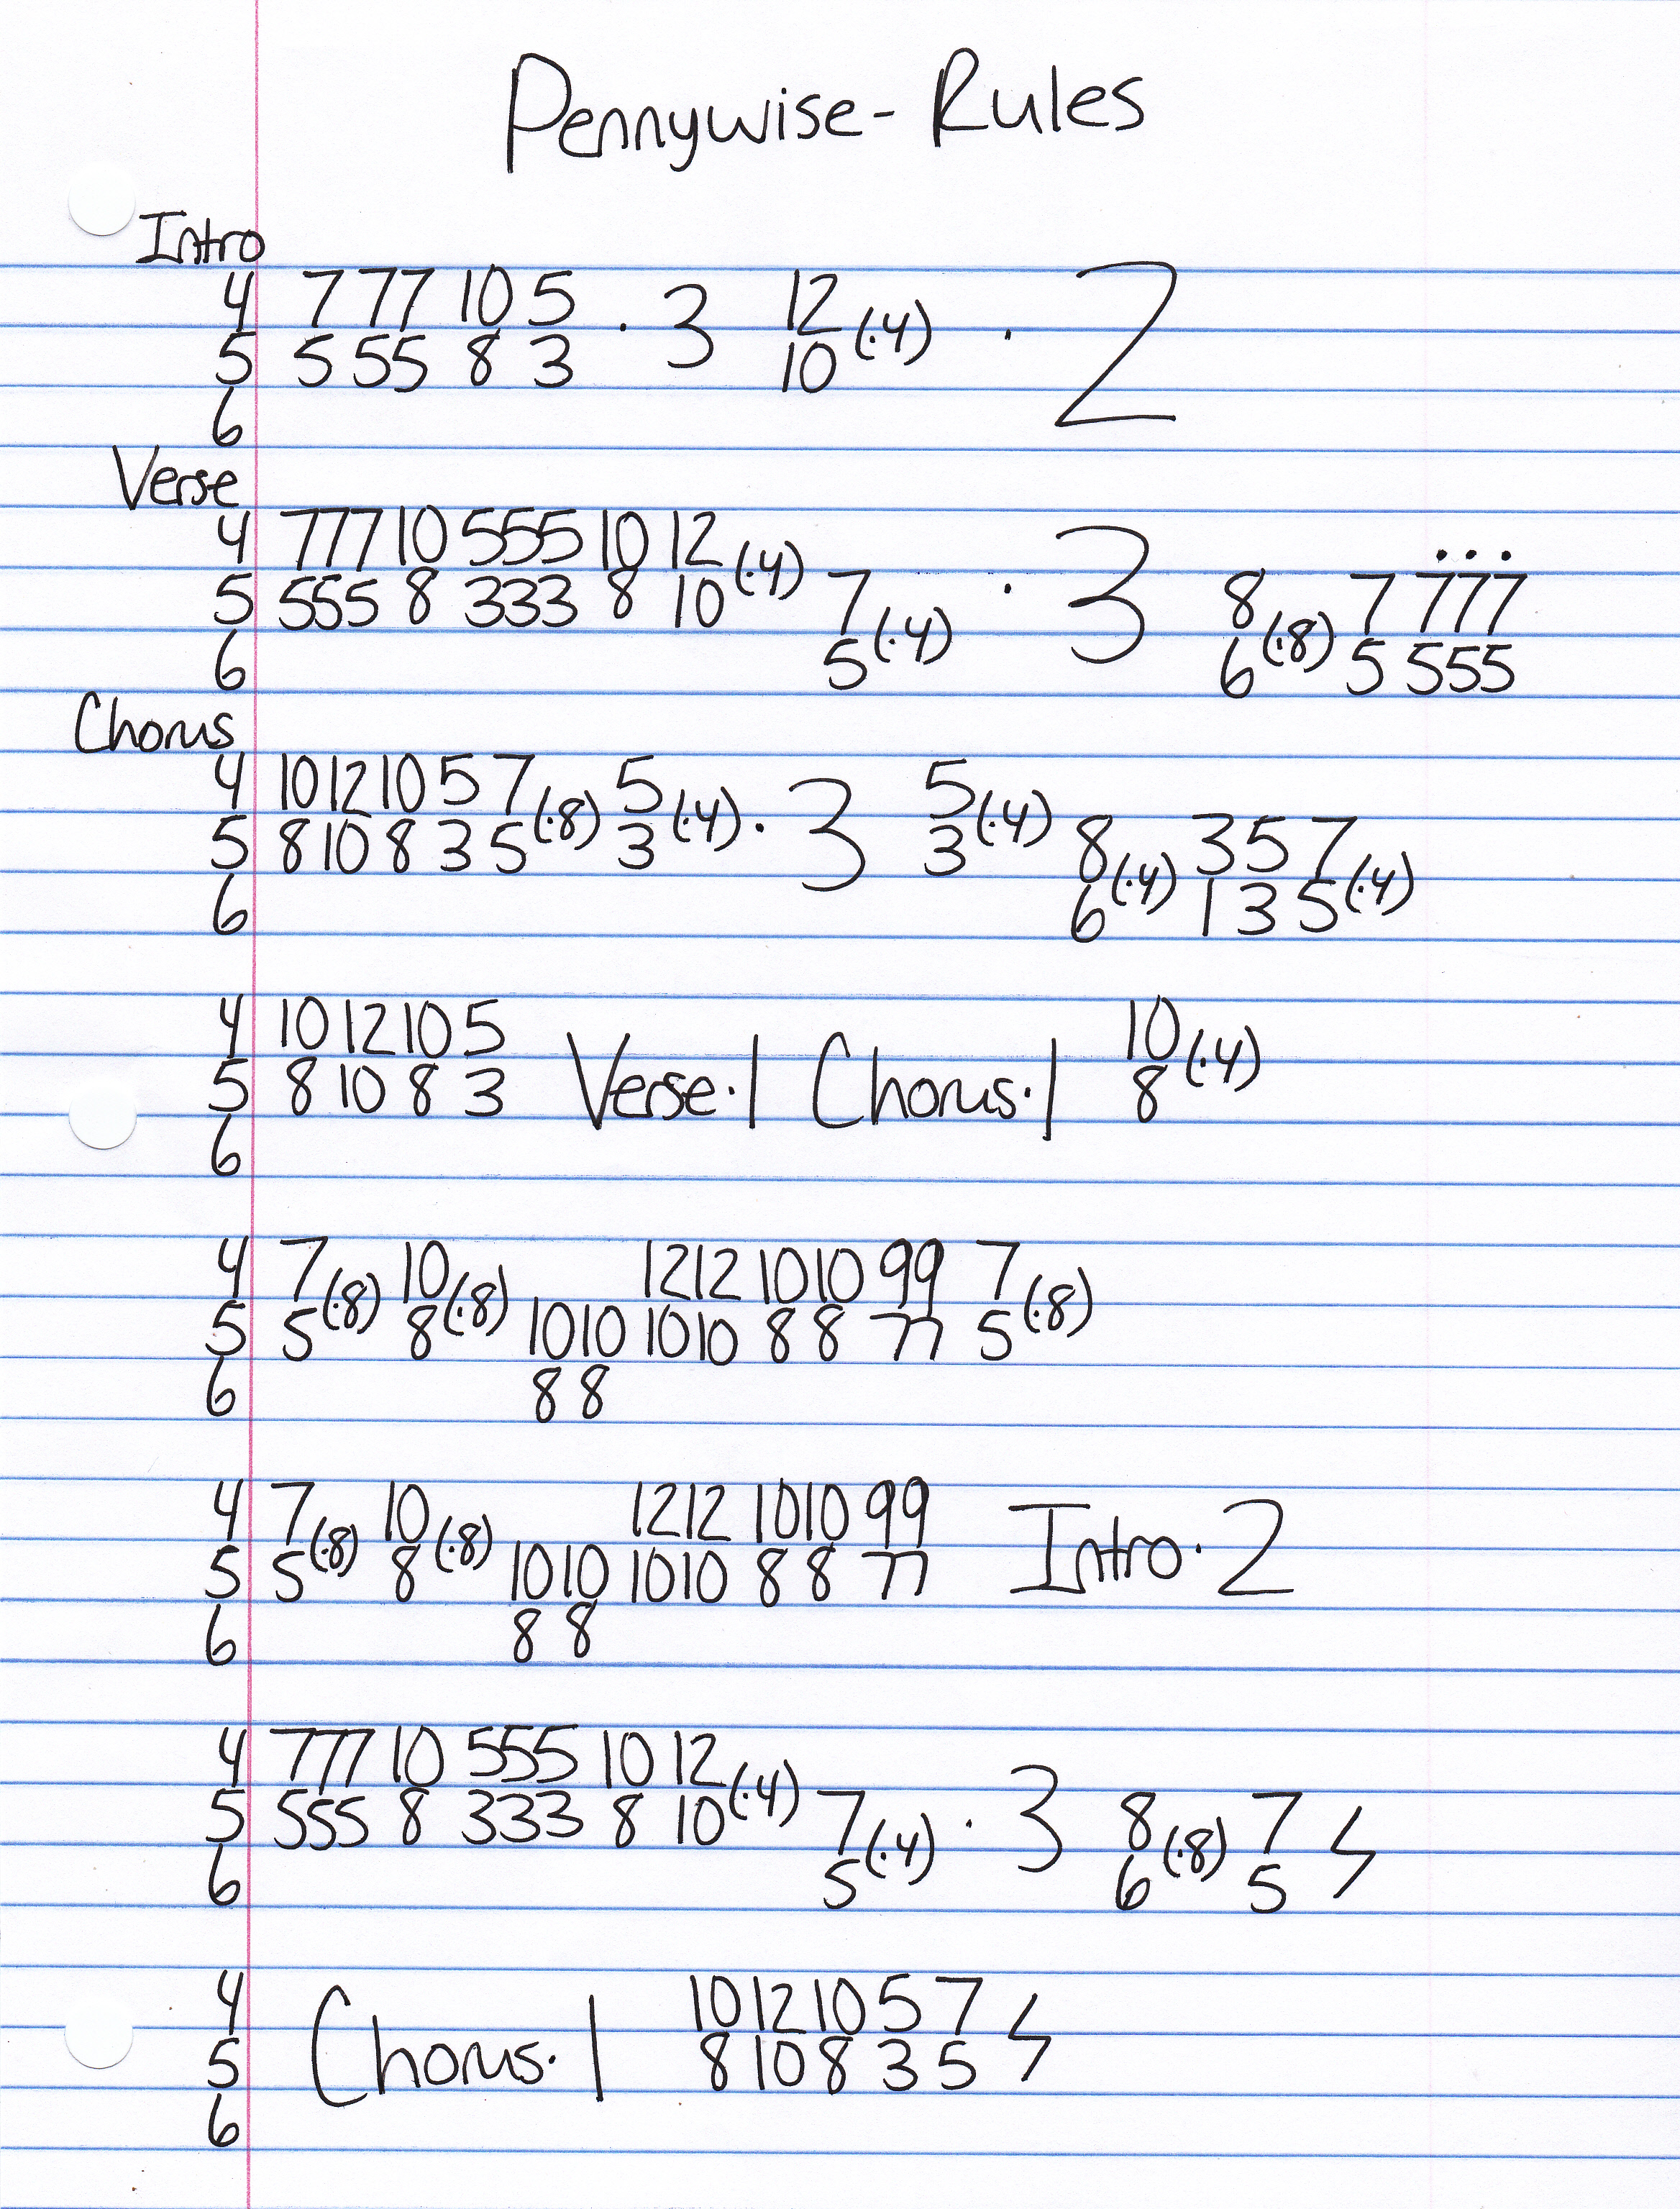 Pennywise - Rules
Intro
4 7 77 10 5 · 3 12 (·4) · 2
5 5 55 8 3 10
6
Verse
4 777 10 555 10 12 (·4) · 3 ...
5 555 8 333 8 10 7 (·4) 8 (·8) 7 777
6 5 6 5 555
Chorus
4 10 12 10 5 7 (·8) 5 (·4) · 3 5 (·4)
5 8 10 8 3 5 3 3 8 (·4) 3 5 7 (·4)
6 6 1 3 5
4 10 12 10 5 Verse · 1 Chorus · 1 10 (·4)
5 8 10 8 3 8
6
4 7 (·8) 10 (·8) 12 12 10 10 99 7 (·8)
5 5 8 10 10 10 10 8 8 77 5
6 8 8
4 7 (·8) 10 (·8) 12 12 10 10 99 Intro · 2
5 5 8 10 10 10 10 8 8 77
6 8 8
4 777 10 555 10 12 (·4) · 3
5 555 8 333 8 10 7 (·4) 8 (·8) 7
6 5 6 5
4 Chorus · 1 10 12 10 5 7
5 8 10 8 3 5
6